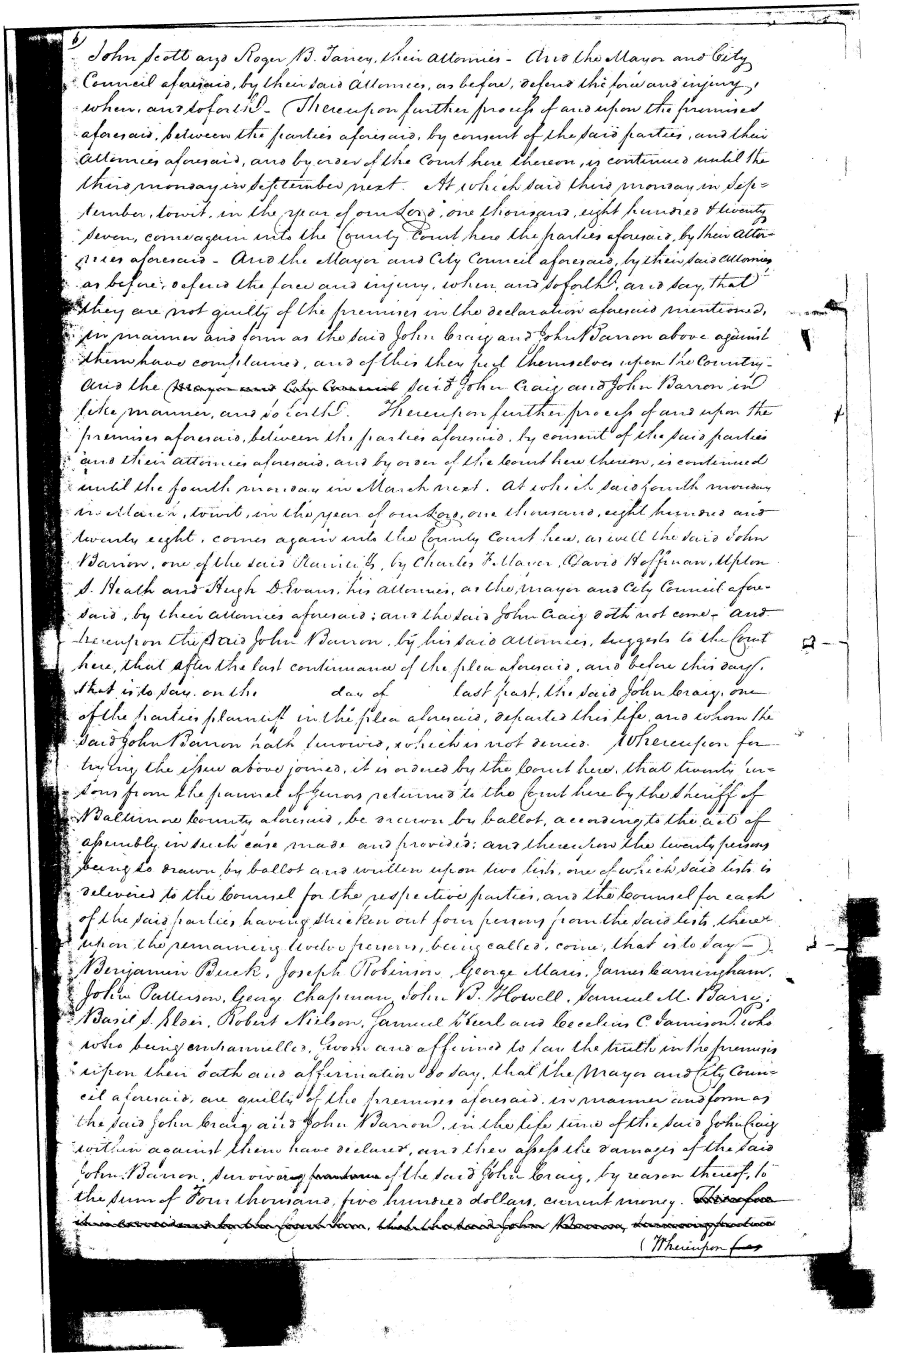 6)
John Scott and Roger B. Taney, their attornies - And the Mayor and City
Council aforesaid, by their said Attornies, as before, defend the force and injury,
when, and soforth. - Thereupon further process of and upon the premises
aforesaid, between the parties aforesaid, by consent of the said parties, and their
attornies aforesaid, and by order of the Court here thereon, is continued until the
third monday in September next. At which said third monday in Sep=
tember, towit, in the year of our Lord, one thousand, eight hundred & twenty
seven, come again into the County Court here the parties aforesaid, by their attor-
nies aforesaid - And the Mayor and City Council aforesaid, by their said attornies
as before, defend the force and injury, when, and soforth, and say, that
they are not guilty of the premises in the declaration aforesaid mentioned,
in manner and form as the said John Craig and John Barron above against
them have complained, and of this they put themselves upon the Country -
And the Mayor and City Council said John Craig and John Barron in
like manner, and soforth. Thereupon further process of and upon the
premises aforesaid, between the parties aforesaid, by consent of the said parties
and their attornies aforesaid, and by order of the Court here thereon, is continued
until the fourth monday in March next. At which said fourth monday
in March, towit, in the year of our Lord, one thousand, eight hundred and
twenty eight, comes again into the County Court here, as well the said John
Barron, one of the said Plaintiffs, by Charles F. Mayer, David Hoffman, Upton
S. Heath and Hugh D. Evans, his attornies, as the mayor and City Council afore-
said, by their attornies aforesaid; and the said John Craig doth not come - And
hereupon the said John Barron, by his said attornies, suggests to the Court
here, that after the last continuance of the plea aforesaid, and before this day,
that is to say, on the day of last past, the said John Craig, one
of the parties plaintiff in the plea aforesaid, departed this life, and whom the
said John Barron hath survived, which is not denied. Whereupon for
trying the issue above joined, it is ordered by the Court here, that twenty per=
sons from the pannel of Jurors returned to the Court here by the Sheriff of
Baltimore County aforesaid, be drawn by ballot, according to the act of
assembly in such case made and provided; and thereupon the twenty persons
being so drawn by ballot and written upon two lists, one of which said lists is
delivered to the Counsel for the respective parties, and the Counsel for each
of the said parties having stricken out four persons from the said lists, there=
upon the remaining twelve persons, being called, come, that is to say -
Benjamin Buck, Joseph Robinson, George Maris, James Carningham,
John Patterson, George Chapman, John B. Howell, Samuel M. Barry,
Basil S. Elder, Robert Nielson, Samuel Hurl and Cecelius C. Jamison, who
who being empannelled, sworn and affirmed to say the truth in the premises
upon their oath and affirmation do say, that the Mayor and City Coun=
cil aforesaid, are guilty of the premises aforesaid, in manner and form as
the said John Craig and John Barron, in the life time of the said John Craig
within against them have declared, and they assess the damages of the said
John Barron, surviving of the said John Craig, by reason thereof, to
the sum of Four thousand, five hundred dollars, current money. Therefore
it is considered by the Court here, that the said John Barron,
(Whereupon